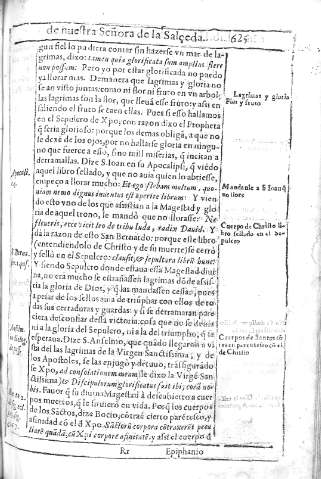 de nuestra Señora de la Salçeda.
625
gun fiel lo pudiera contar sin hazerse vn mar de la-
grimas, dixo: tamen quia glorificata sum amplius flere
non possum: Pero yo por estar glorificada no puedo
ya llorar mas. De manera que lagrimas y gloria no
se an visto juntas: como ni flor ni fruto en vn arbol,
las lagrimas son la flor, que lleuā esse fruto: y assi en
saliendo el fruto se caen ellas. Pues si esso hallamos
en el Sepulcro de Xpo, con razon dixo el Propheta
q̃ seria glorioso: porque los demas obligā, a que no
se dexe de los ojos, por no hallarse gloria en ningu-
no que fuerce a esso, sino mil miserias, q̃ incitan a
derramallas. Dize S. Ioan en su Apocalipsi, q̃ viédo
aquel libro sellado, y que no auia quien le abriesse,
empeço a llorar mucho: Et ego flebam multum, quo-
niam nemo dignus inuentus est aperire librum: Y vien-
do esto vno de los que assistian a la Magestad y glo-
ria de aquel trono, le mandò que no llorasse: Ne
fleueris, ecce vicit leo de tribu Iuda, radix Dauid. Y
da la razon de esto San Bernardo: porque este libro
(entendiendolo de Christo y de su muerte) se cerrò
y sellò en el Sepulcro: clausit, & sepultura libri hunc:
Y siendo Sepulcro donde estaua essa Magestad diui-
na, no era mucho se estrañassen lagrimas dōde assis-
tia la gloria de Dios, y q̃ las mandassen cessar, pues
a pesar de los sellos auia de triumphar con ellos de to-
das sus cerraduras y guardas: y si se derramaran pare-
ciera desconfiar dessa victoria: cosa que no se deuia
ni a la gloria del Sepulcro, ni a la del triumpho, q̃ se
esperaua. Dize S. Anselmo, que quādo llegaron a vi-
sta del las lagrimas de la Virgen Sanctissima, y de
los Apostoles, se las enjugò y detuuo, trāsfigurādo
se Xpo,
Fauor q̃ su diuina Magestad à descubierto a cuer-
pos muertos, q̃ le siruierō en vida. Porq̃ los cuerpos
de los Sāctos, dize Bocio, cōtraē cierto parētesco, y
afinidad cō el d̄ Xpo.
Rr
Epiphanio
Lagrimas y gloria
Flor y fruto
Mandanle a S. Ioan q̃
no llore
Cuerpo de Christo li-
bro sellado en el se-
pulcro
Cuerpos de Santos cō
traen parentesco cō el
de Christo